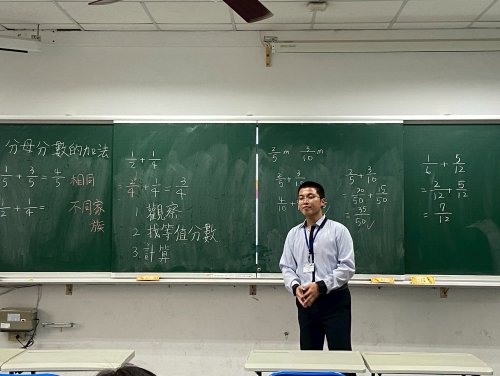 分母分數的加法
1/5 + 3/5 = 4/5 相同
1/2 + 1/4 = 不同家
族
1/2 + 1/4
= 2/4 + 1/4 = 3/4
1 觀察
2 找等值分數
3. 計算
2/5 m 3/10 m
2/5 + 3/10
4/10 +
2/5 + 3/10
= 20/50 + 15/50
= 35/50 ✓
1/6 + 5/12
= 2/12 5/12
= 7/12